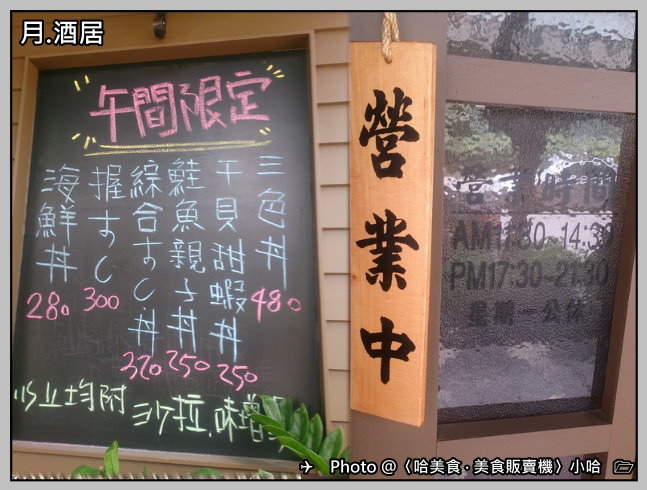 月.酒居
午間限定
三色丼 480
干貝甜蝦丼 250
鮭魚親子丼 250
綜合すし丼 320
握すし 300
海鮮丼 280
以上均附 沙拉.味增
營業中
營業時間
AM11:30~14:30
PM17:30~21:30
星期一公休
Photo @〈哈美食·美食販賣機〉小哈